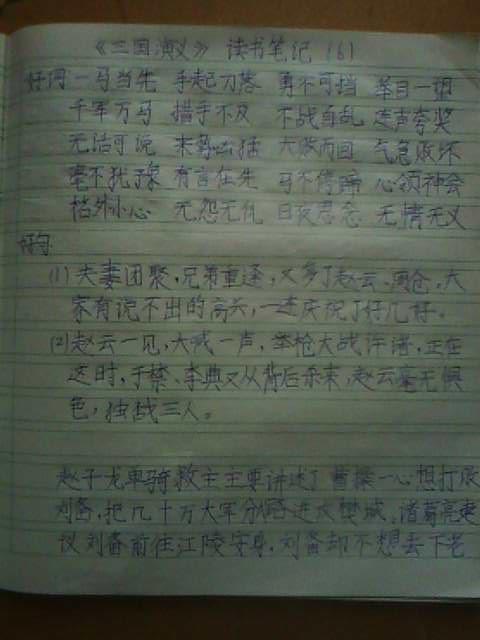 《三国演义》 读书笔记 (6)
好词 一马当先 手起刀落 勇不可挡 举目一望
千军万马 措手不及 不战自乱 连声夸奖
无话可说 大败而回 气急败坏
毫不犹豫 有言在先 马不停蹄 心领神会
格外小心 无怨无仇 日夜思念 无情无义
好句
(1) 夫妻团聚,兄弟重逢,又多了赵云、周仓,大
家有说不出的高兴,一连庆祝了好几天。
(2) 赵云一见,大喊一声,举枪大战许诸,正在
这时,于禁、李典又从背后杀来,赵云毫无惧
色,独战三人。
赵子龙单骑救主主要讲述了曹操一心想打败
刘备,把几十万大军分路进攻樊城,诸葛亮建
议刘备前往江陵安身,刘备却不想丢下老